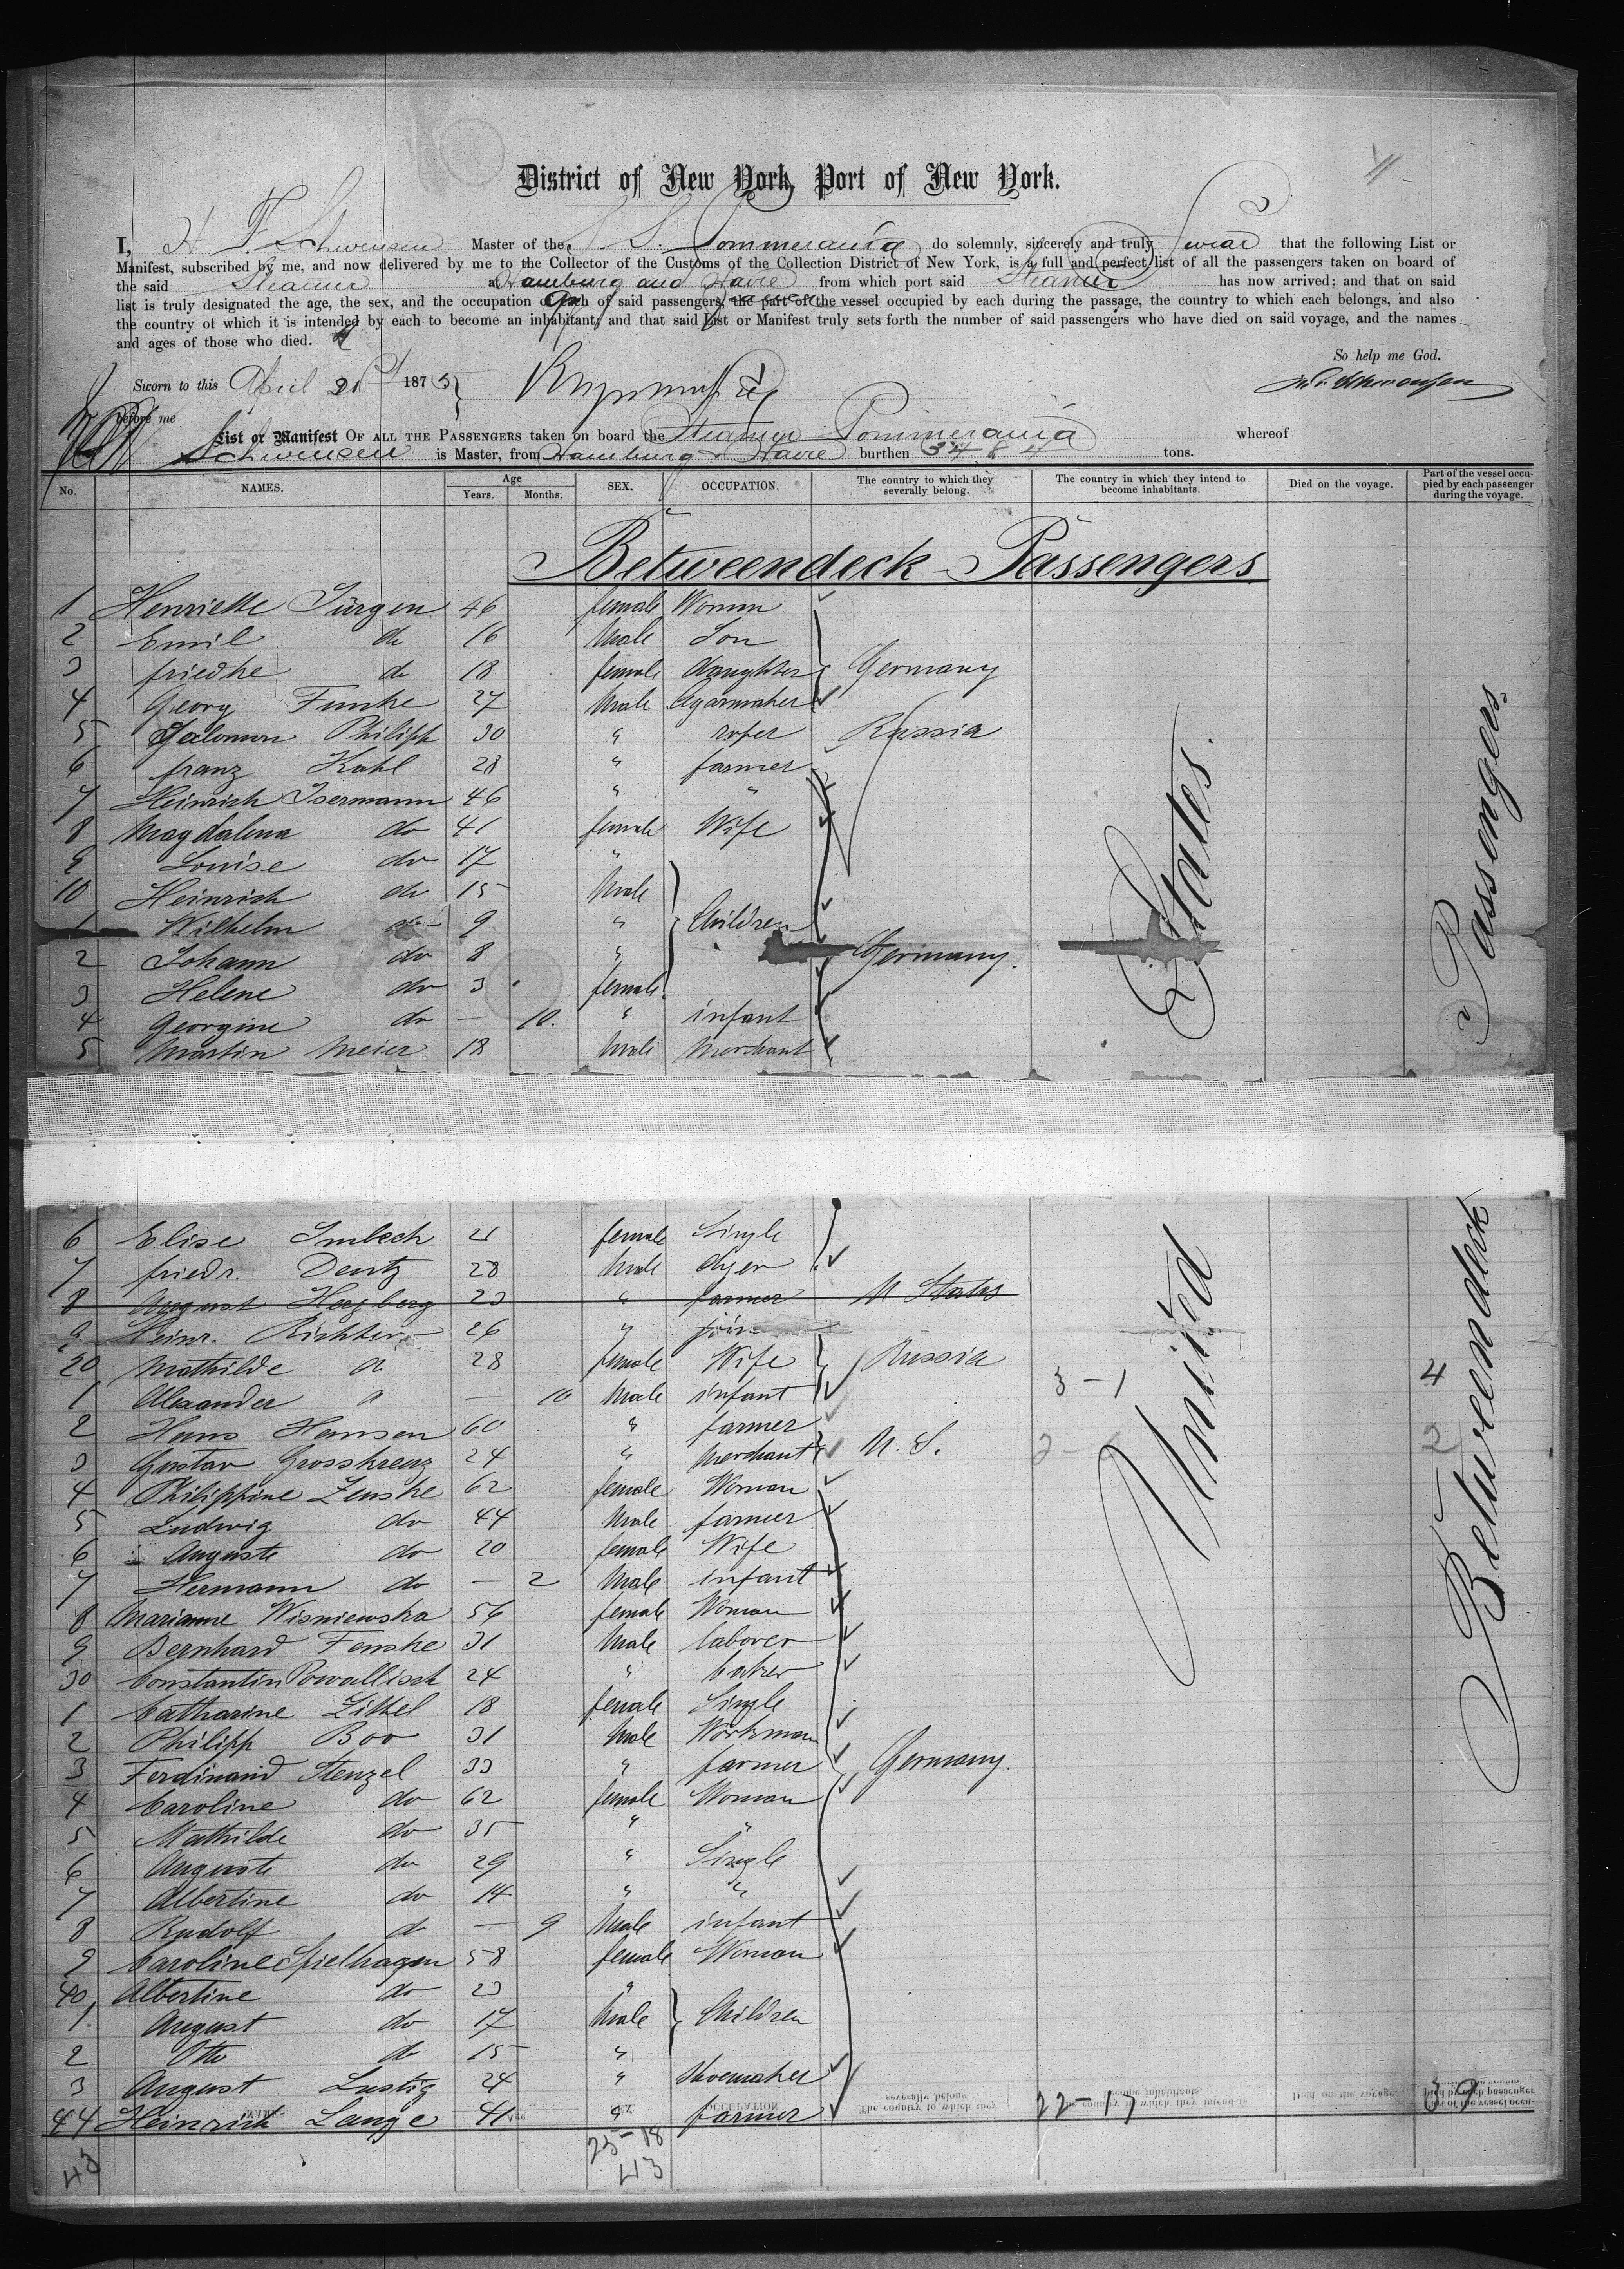 District of New York, Port of New York.
I, H. F. Schwensen Master of the S. S. Pommerania do solemnly, sincerely and truly swear that the following List or
Manifest, subscribed by me, and now delivered by me to the Collector of the Customs of the Collection District of New York, is a full and perfect list of all the passengers taken on board of
the said Steamer at Hamburg and Havre from which port said Steamer has now arrived; and that on said
list is truly designated the age, the sex, and the occupation of each of said passengers, the part of the vessel occupied by each during the passage, the country to which each belongs, and also
the country of which it is intended by each to become an inhabitant; and that said List or Manifest truly sets forth the number of said passengers who have died on said voyage, and the names
and ages of those who died.
So help me God.
Sworn to this April 21st 1875
before me
List or Manifest OF ALL THE PASSENGERS taken on board the Steamer Pommerania whereof
Schwensen is Master, from Hamburg & Havre burthen 3484 tons.
No. NAMES. Age Years. Months. SEX. OCCUPATION. The country to which they severally belong. The country in which they intend to become inhabitants. Died on the voyage. Part of the vessel occupied by each passenger during the voyage.
Betweendeck Passengers
1 Henriette Jürgen 46 female Woman
2 Emil do 16 Male Son
3 friedke do 18 female daughter Germany
4 Georg Funke 27 Male Cigarmaker
5 Salomon Philipp 30 " roper Russia
6 franz Kahl 28 " farmer
7 Heinrich Isermann 46 " "
8 Magdalena do 41 female Wife
9 Louise do 17 "
10 Heinrich do 15 Male
1 Wilhelm do 9 " Children
2 Johann do 8 " Germany.
3 Helene do 3 female
4 Georgine do — 10. " infant
5 Martin Meier 18 Male Merchant
6 Elise Imbech 21 female Single
7 friedr. Dentz 28 Male dyer
8 August Herzberg 23 " farmer U States
9 Heinr. Richter 26 "
20 Mathilde do 28 female Wife Russia
1 Alexander do — 10 Male infant 3-1 4
2 Hans Hansen 60 " farmer
3 Gustav Grosskreuz 24 " Merchant U. S. 2
4 Philippine Zenske 62 female Woman
5 Ludwig do 44 Male farmer
6 Auguste do 20 female Wife
7 Hermann do — 2 Male infant
8 Marianne Wisniewska 56 female Woman
9 Bernhard Fenske 31 Male laborer
30 Constantin Powallisch 24 " baker
1 Catharine Zittel 18 female Single
2 Philipp Boo 31 Male Workman
3 Ferdinand Stenzel 33 " farmer Germany.
4 Caroline do 62 female Woman
5 Mathilde do 35 " "
6 Auguste do 29 " Single
7 Albertine do 14 " "
8 Rudolf do — 9 Male infant
9 Caroline Spielhagen 58 female Woman
40 Albertine do 23 "
1 August do 17 Male Children
2 Otto do 15 "
3 August Lustig 24 " Shoemaker
44 Heinrich Lange 41 " farmer 22-17 39
25-18
43 43
United States.
Betweendeck Passengers.